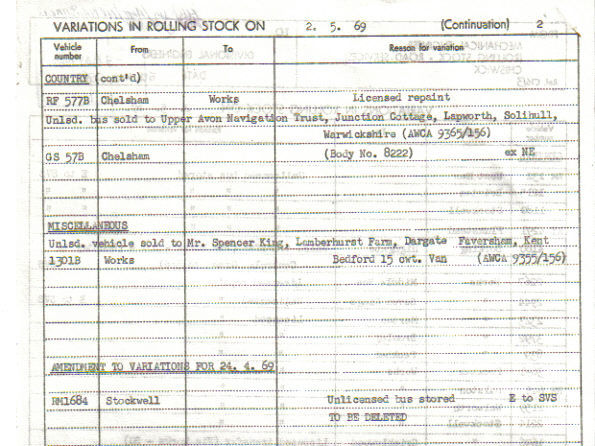 VARIATIONS IN ROLLING STOCK ON 2. 5. 69 (Continuation) 2
Vehicle number From To Reason for variation
COUNTRY (cont'd)
RF 577B Chelsham Works Licensed repaint
Unlsd. bus sold to Upper Avon Navigation Trust, Junction Cottage, Lapworth, Solihull,
Warwickshire (AWCA 9365/156)
GS 57B Chelsham (Body No. 8222) ex NE
MISCELLANEOUS
Unlsd. vehicle sold to Mr. Spencer King, Lamberhurst Farm, Dargate Faversham, Kent
1301B Works Bedford 15 cwt. Van (AWCA 9355/156)
AMENDMENT TO VARIATIONS FOR 24. 4. 69
RM1684 Stockwell Unlicensed bus stored E to SVS
TO BE DELETED